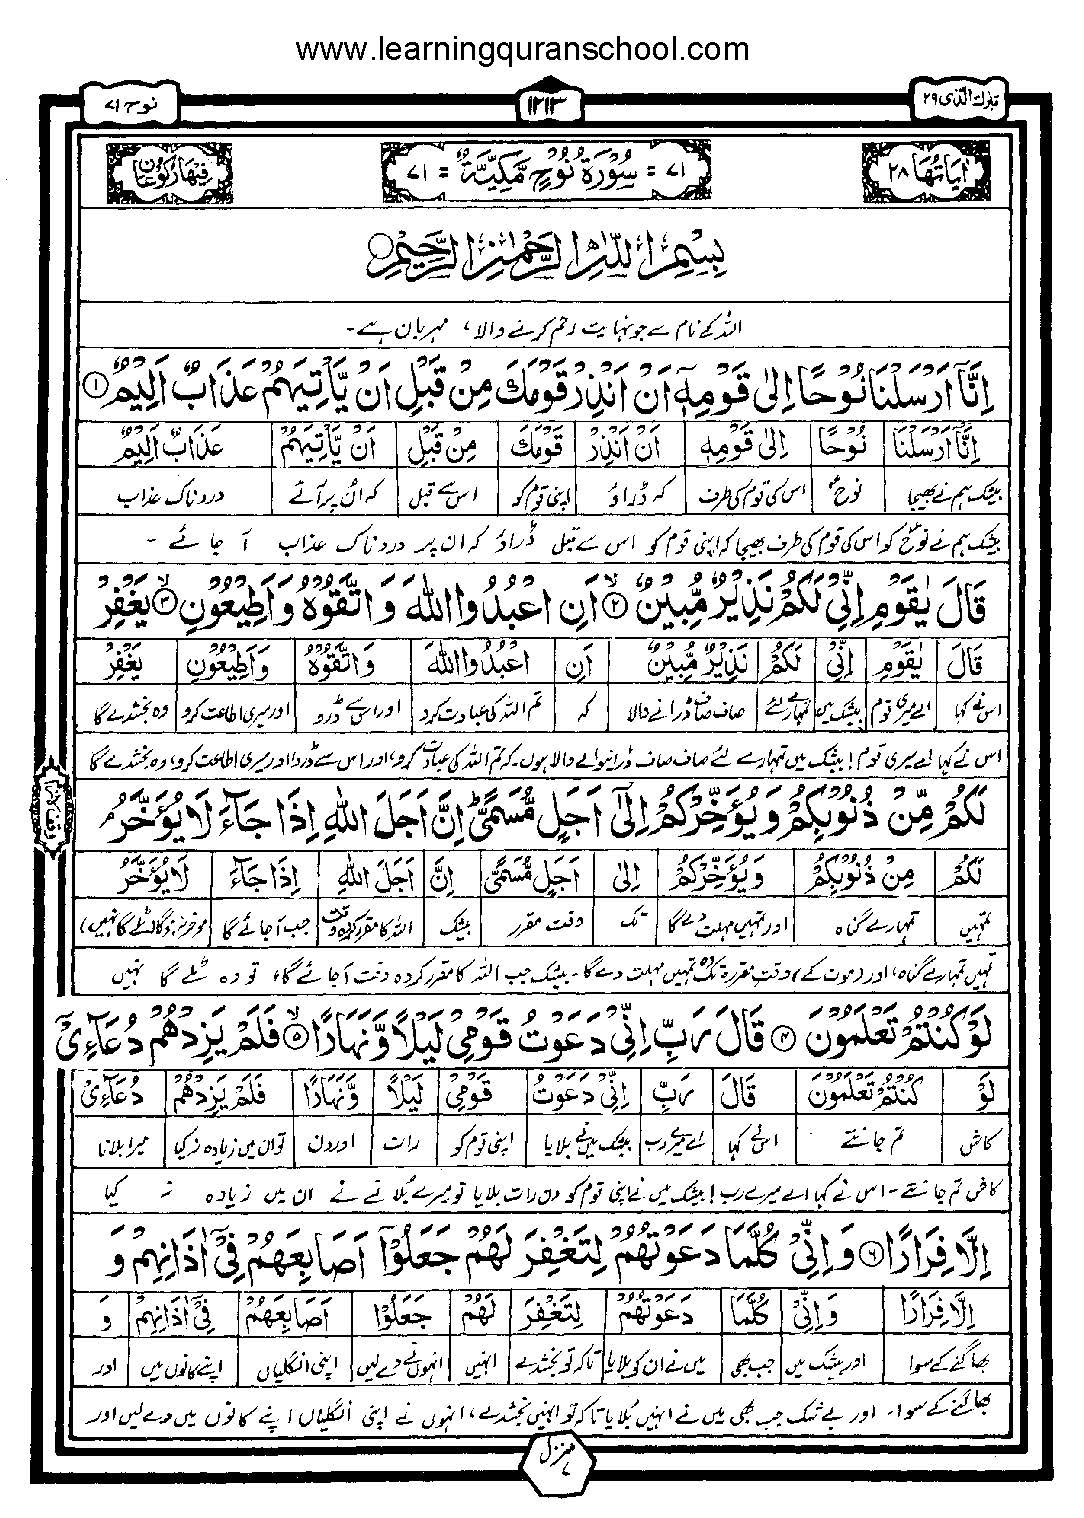 www.learningquranschool.com
تبٰرك الذی ۲۹
۱۲۱۳
نوح ۷۱
اٰیَاتُهَا ۲۸
۷۱ = سُوْرَةُ نُوْحٍ مَّكِّیَّةٌ = ۷۱
رُكُوْعَاتُهَا
بِسْمِ اللّٰهِ الرَّحْمٰنِ الرَّحِیْمِ
اللہ کے نام سے جو نہایت رحم کرنے والا، مہربان ہے۔
اِنَّاۤ اَرْسَلْنَا نُوْحًا اِلٰى قَوْمِهٖۤ اَنْ اَنْذِرْ قَوْمَكَ مِنْ قَبْلِ اَنْ یَّاْتِیَهُمْ عَذَابٌ اَلِیْمٌ ۱
اِنَّاۤ اَرْسَلْنَا نُوْحًا اِلٰى قَوْمِهٖۤ اَنْ اَنْذِرْ قَوْمَكَ مِنْ قَبْلِ اَنْ یَّاْتِیَهُمْ عَذَابٌ اَلِیْمٌ
بیشک ہم نے بھیجا نوح اس کی قوم کی طرف کہ ڈراؤ اپنی قوم کو اس سے قبل کہ ان پر آئے دردناک عذاب
بیشک ہم نے نوح کو اس کی قوم کی طرف بھیجا کہ اپنی قوم کو اس سے قبل ڈراؤ کہ ان پر دردناک عذاب آ جائے ۔
قَالَ یٰقَوْمِ اِنِّیْ لَكُمْ نَذِیْرٌ مُّبِیْنٌ ۲ اَنِ اعْبُدُوا اللّٰهَ وَ اتَّقُوْهُ وَ اَطِیْعُوْنِ ۳ یَغْفِرْ
قَالَ یٰقَوْمِ اِنِّیْ لَكُمْ نَذِیْرٌ مُّبِیْنٌ اَنِ اعْبُدُوا اللّٰهَ وَ اتَّقُوْهُ وَ اَطِیْعُوْنِ یَغْفِرْ
اس نے کہا اے میری قوم بیشک میں تمہارے لئے صاف صاف ڈرانے والا کہ تم اللہ کی عبادت کرو اور اس سے ڈرو اور میری اطاعت کرو وہ بخشدے گا
اس نے کہا اے میری قوم! بیشک میں تمہارے لئے صاف صاف ڈرانیوالے والا ہوں۔ کہ تم اللہ کی عبادت کرو، اور اس سے ڈرو اور میری اطاعت کرو، وہ بخشدے گا
لَكُمْ مِّنْ ذُنُوْبِكُمْ وَ یُؤَخِّرْكُمْ اِلٰۤى اَجَلٍ مُّسَمًّى ؕ اِنَّ اَجَلَ اللّٰهِ اِذَا جَآءَ لَا یُؤَخَّرُ
لَكُمْ مِّنْ ذُنُوْبِكُمْ وَ یُؤَخِّرْكُمْ اِلٰى اَجَلٍ مُّسَمًّى اِنَّ اَجَلَ اللّٰهِ اِذَا جَآءَ لَا یُؤَخَّرُ
تمہیں تمہارے گناہ اور تمہیں مہلت دے گا تک وقت مقرر بیشک اللہ کا مقرر کردہ وقت جب آجائے گا مؤخر نہ ہوگا (ٹلے گا نہیں)
تمہیں تمہارے گناہ، اور (موت کے) وقت مقررہ تک وہ تمہیں مہلت دے گا۔ بیشک جب اللہ کا مقرر کردہ وقت آجائے گا، تو وہ ٹلے گا نہیں
لَوْ كُنْتُمْ تَعْلَمُوْنَ ۴ قَالَ رَبِّ اِنِّیْ دَعَوْتُ قَوْمِیْ لَیْلًا وَّ نَهَارًا ۵ فَلَمْ یَزِدْهُمْ دُعَآءِیْۤ
لَوْ كُنْتُمْ تَعْلَمُوْنَ قَالَ رَبِّ اِنِّیْ دَعَوْتُ قَوْمِیْ لَیْلًا وَّ نَهَارًا فَلَمْ یَزِدْهُمْ دُعَآءِیْ
کاش تم جانتے اس نے کہا اے میرے رب بیشک میں نے بلایا اپنی قوم کو رات اور دن تو ان میں زیادہ نہ کیا میرا بلانا
کاش تم جانتے۔ اس نے کہا اے میرے رب! بیشک میں نے اپنی قوم کو دن رات بلایا تو میرے بلانے نے ان میں زیادہ نہ کیا
اِلَّا فِرَارًا ۶ وَ اِنِّیْ كُلَّمَا دَعَوْتُهُمْ لِتَغْفِرَ لَهُمْ جَعَلُوْۤا اَصَابِعَهُمْ فِیْۤ اٰذَانِهِمْ وَ
اِلَّا فِرَارًا وَ اِنِّیْ كُلَّمَا دَعَوْتُهُمْ لِتَغْفِرَ لَهُمْ جَعَلُوْۤا اَصَابِعَهُمْ فِیْۤ اٰذَانِهِمْ وَ
بھاگنے کے سوا اور بیشک میں جب بھی میں نے ان کو بلایا تاکہ تو بخشدے انہیں انہوں نے دے لیں اپنی انگلیاں اپنے کانوں میں اور
بھاگنے کے سوا۔ اور بے شک جب بھی میں نے انہیں بلایا تاکہ تو انہیں بخشدے، انہوں نے اپنی انگلیاں اپنے کانوں میں دے لیں اور
منزل ۷